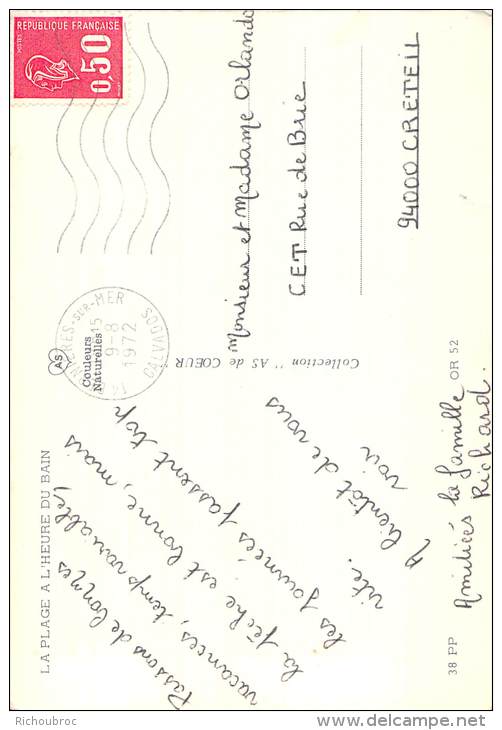 LA PLAGE A L'HEURE DU BAIN
Passons de bonnes
vacances, temps variable,
la pêche est bonne, mais
les journées passent trop
vite.
A bientôt de vous
voir
Amitiés la famille
Richard.
38 PP
OR 52
Collection "AS de COEUR"
AS
Couleurs
Naturelles
SUR-MER
CALVADOS
14
15
9-8
1972
REPUBLIQUE FRANÇAISE
POSTES
0,50
Monsieur et Madame Orlando
CET Rue de Brie
94000 CRETEIL
Richoubroc
www.delcampe.net